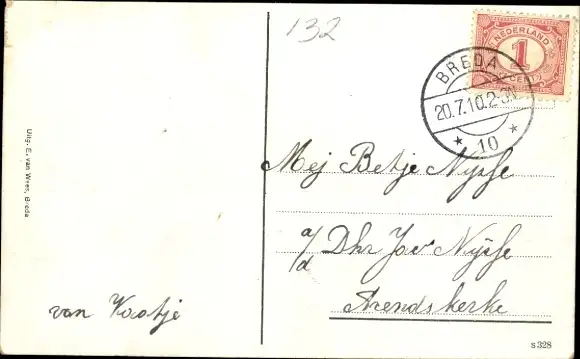 132
NEDERLAND
1
CENT
BREDA
20.7.10.2-3N
10
Mej Betje Nijsse
a/d Dhr Jac Nijsse
Arendskerke
van Kaatje
Uitg. E. van Wees, Breda
s 328